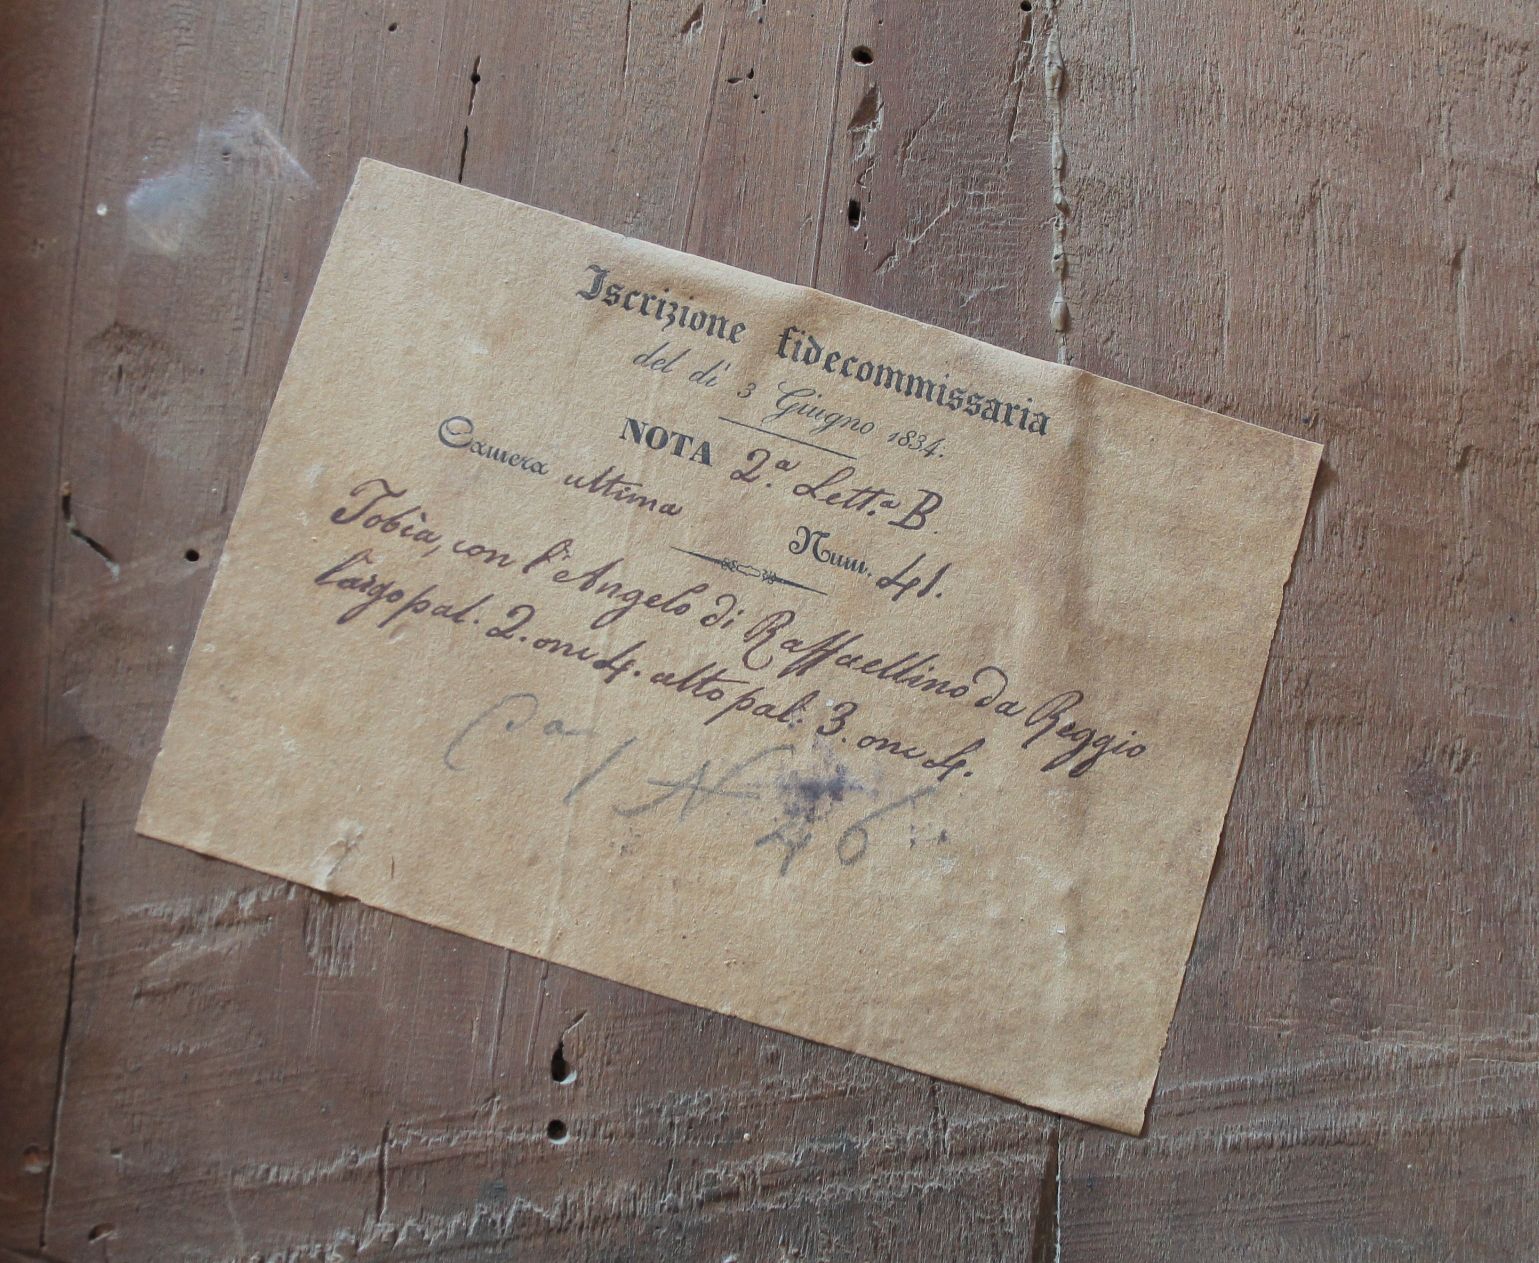 Iscrizione fidecommissaria
del dì 3 Giugno 1834.
NOTA 2.ª Lett.ª B.
Camera ultima Num. 41.
Tobia, con l'Angelo di Raffaellino da Reggio
largo pal. 2. onc 4. alto pal: 3. onc 4.
N
46